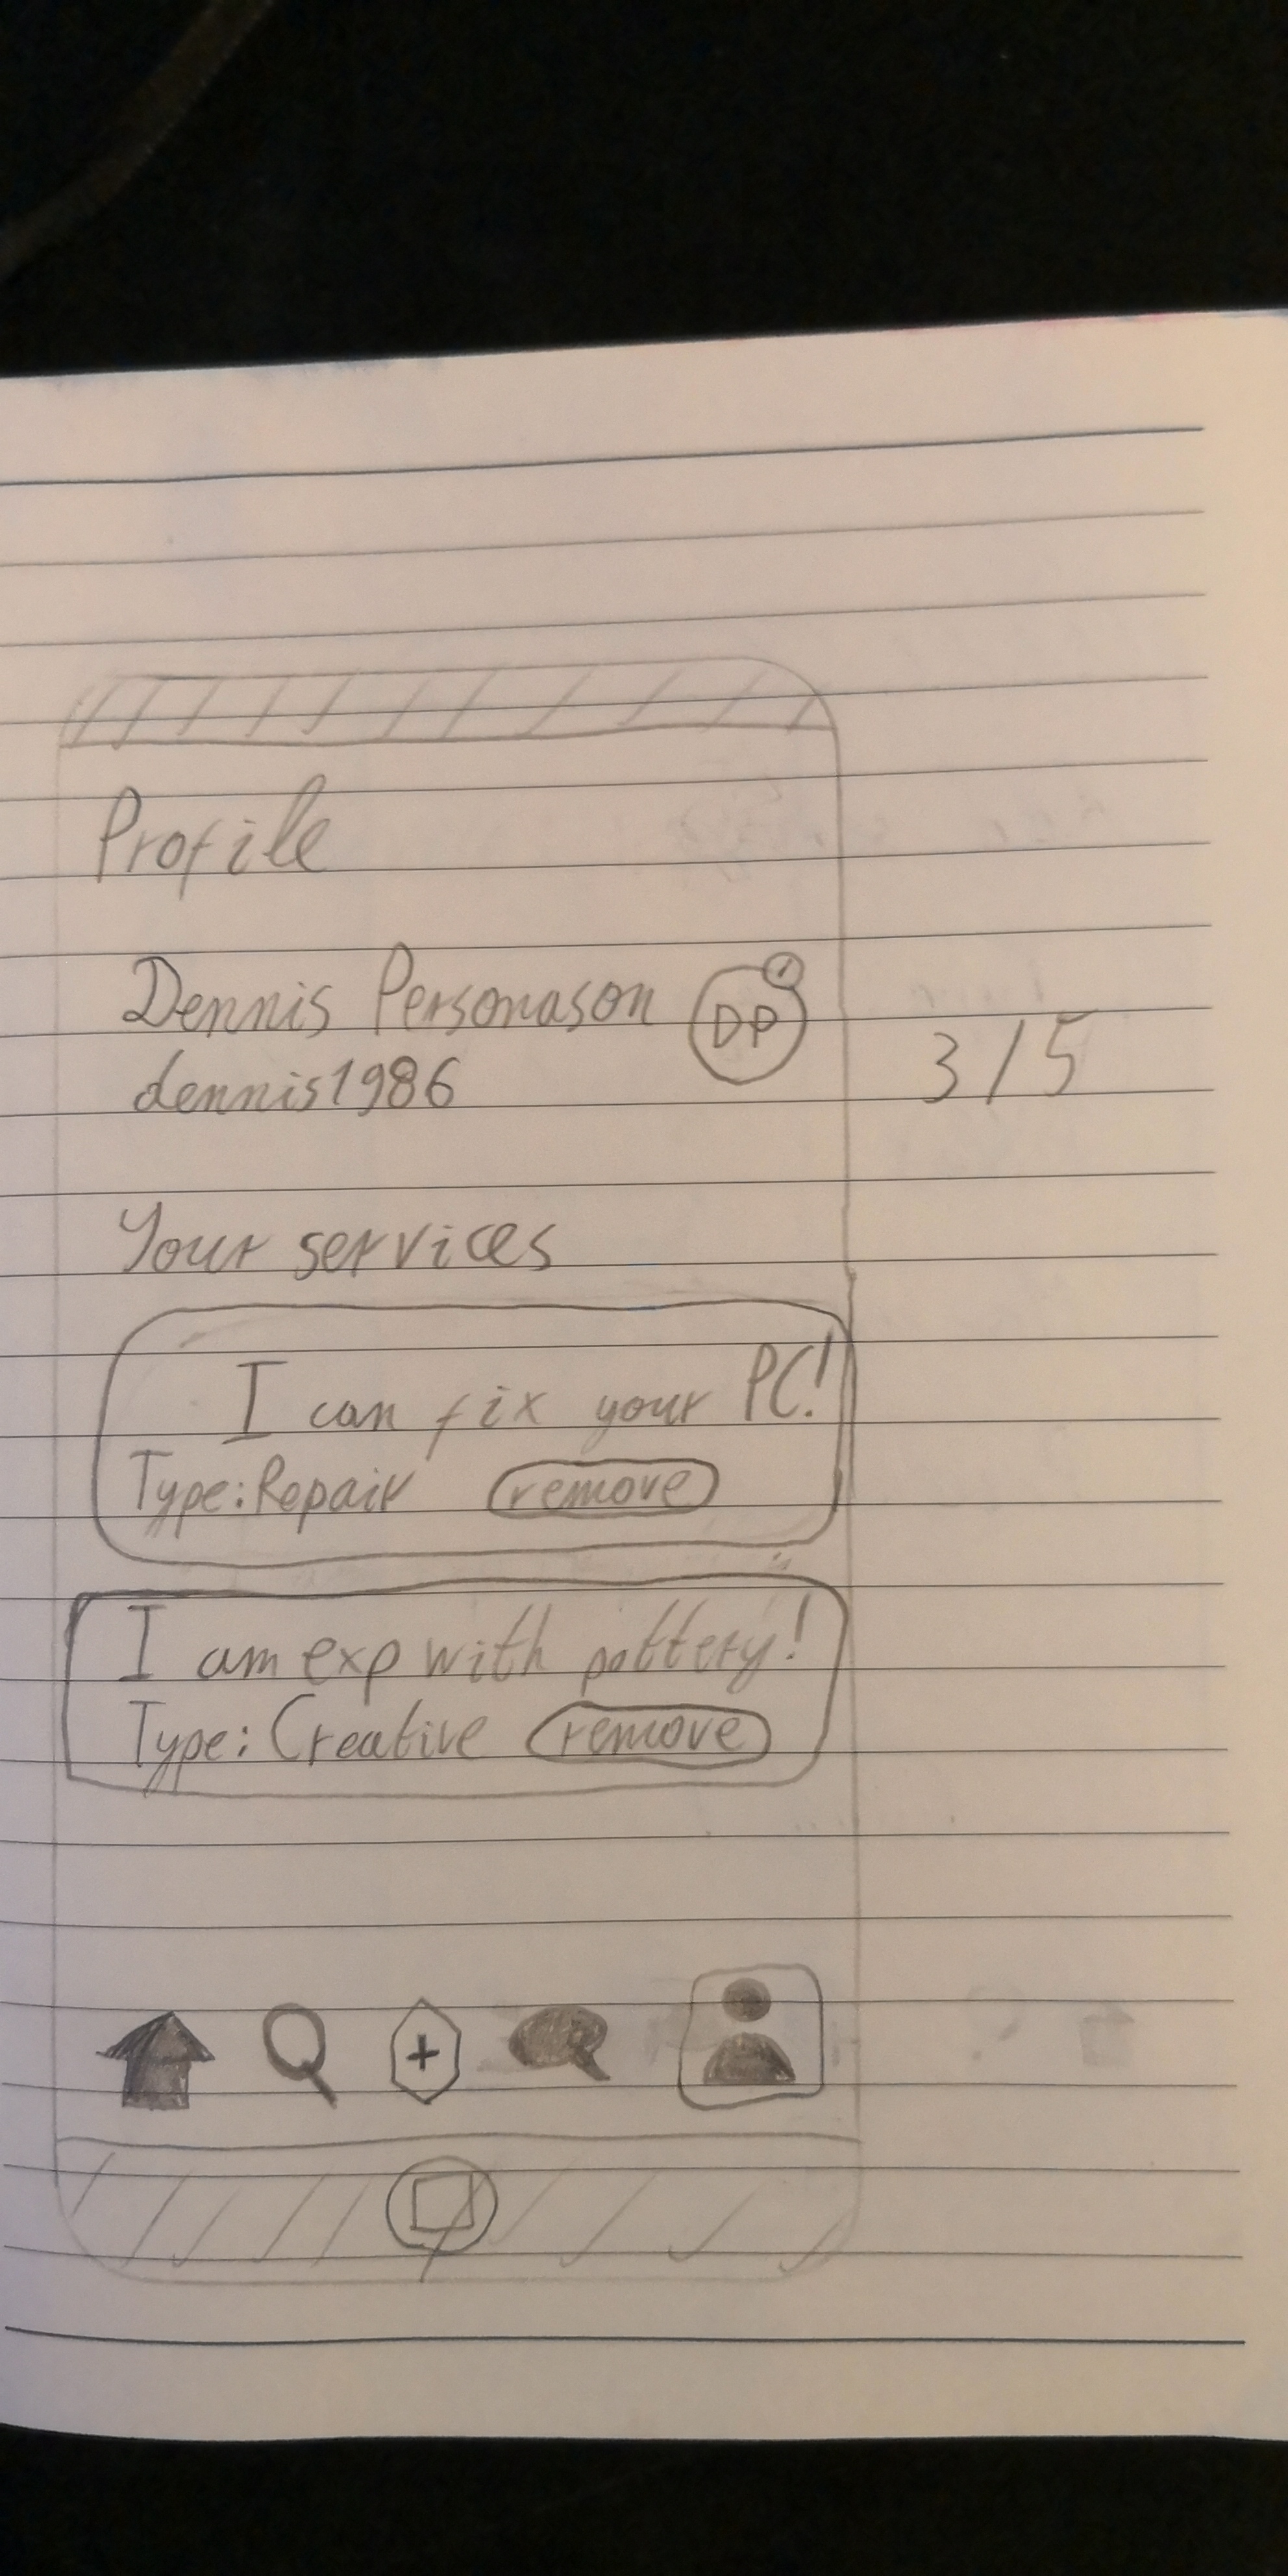 Profile
Dennis Personason
DP
dennis1986
3/5
Your services
I can fix your PC!
Type: Repair remove
I am exp with pottery!
Type: Creative remove
+